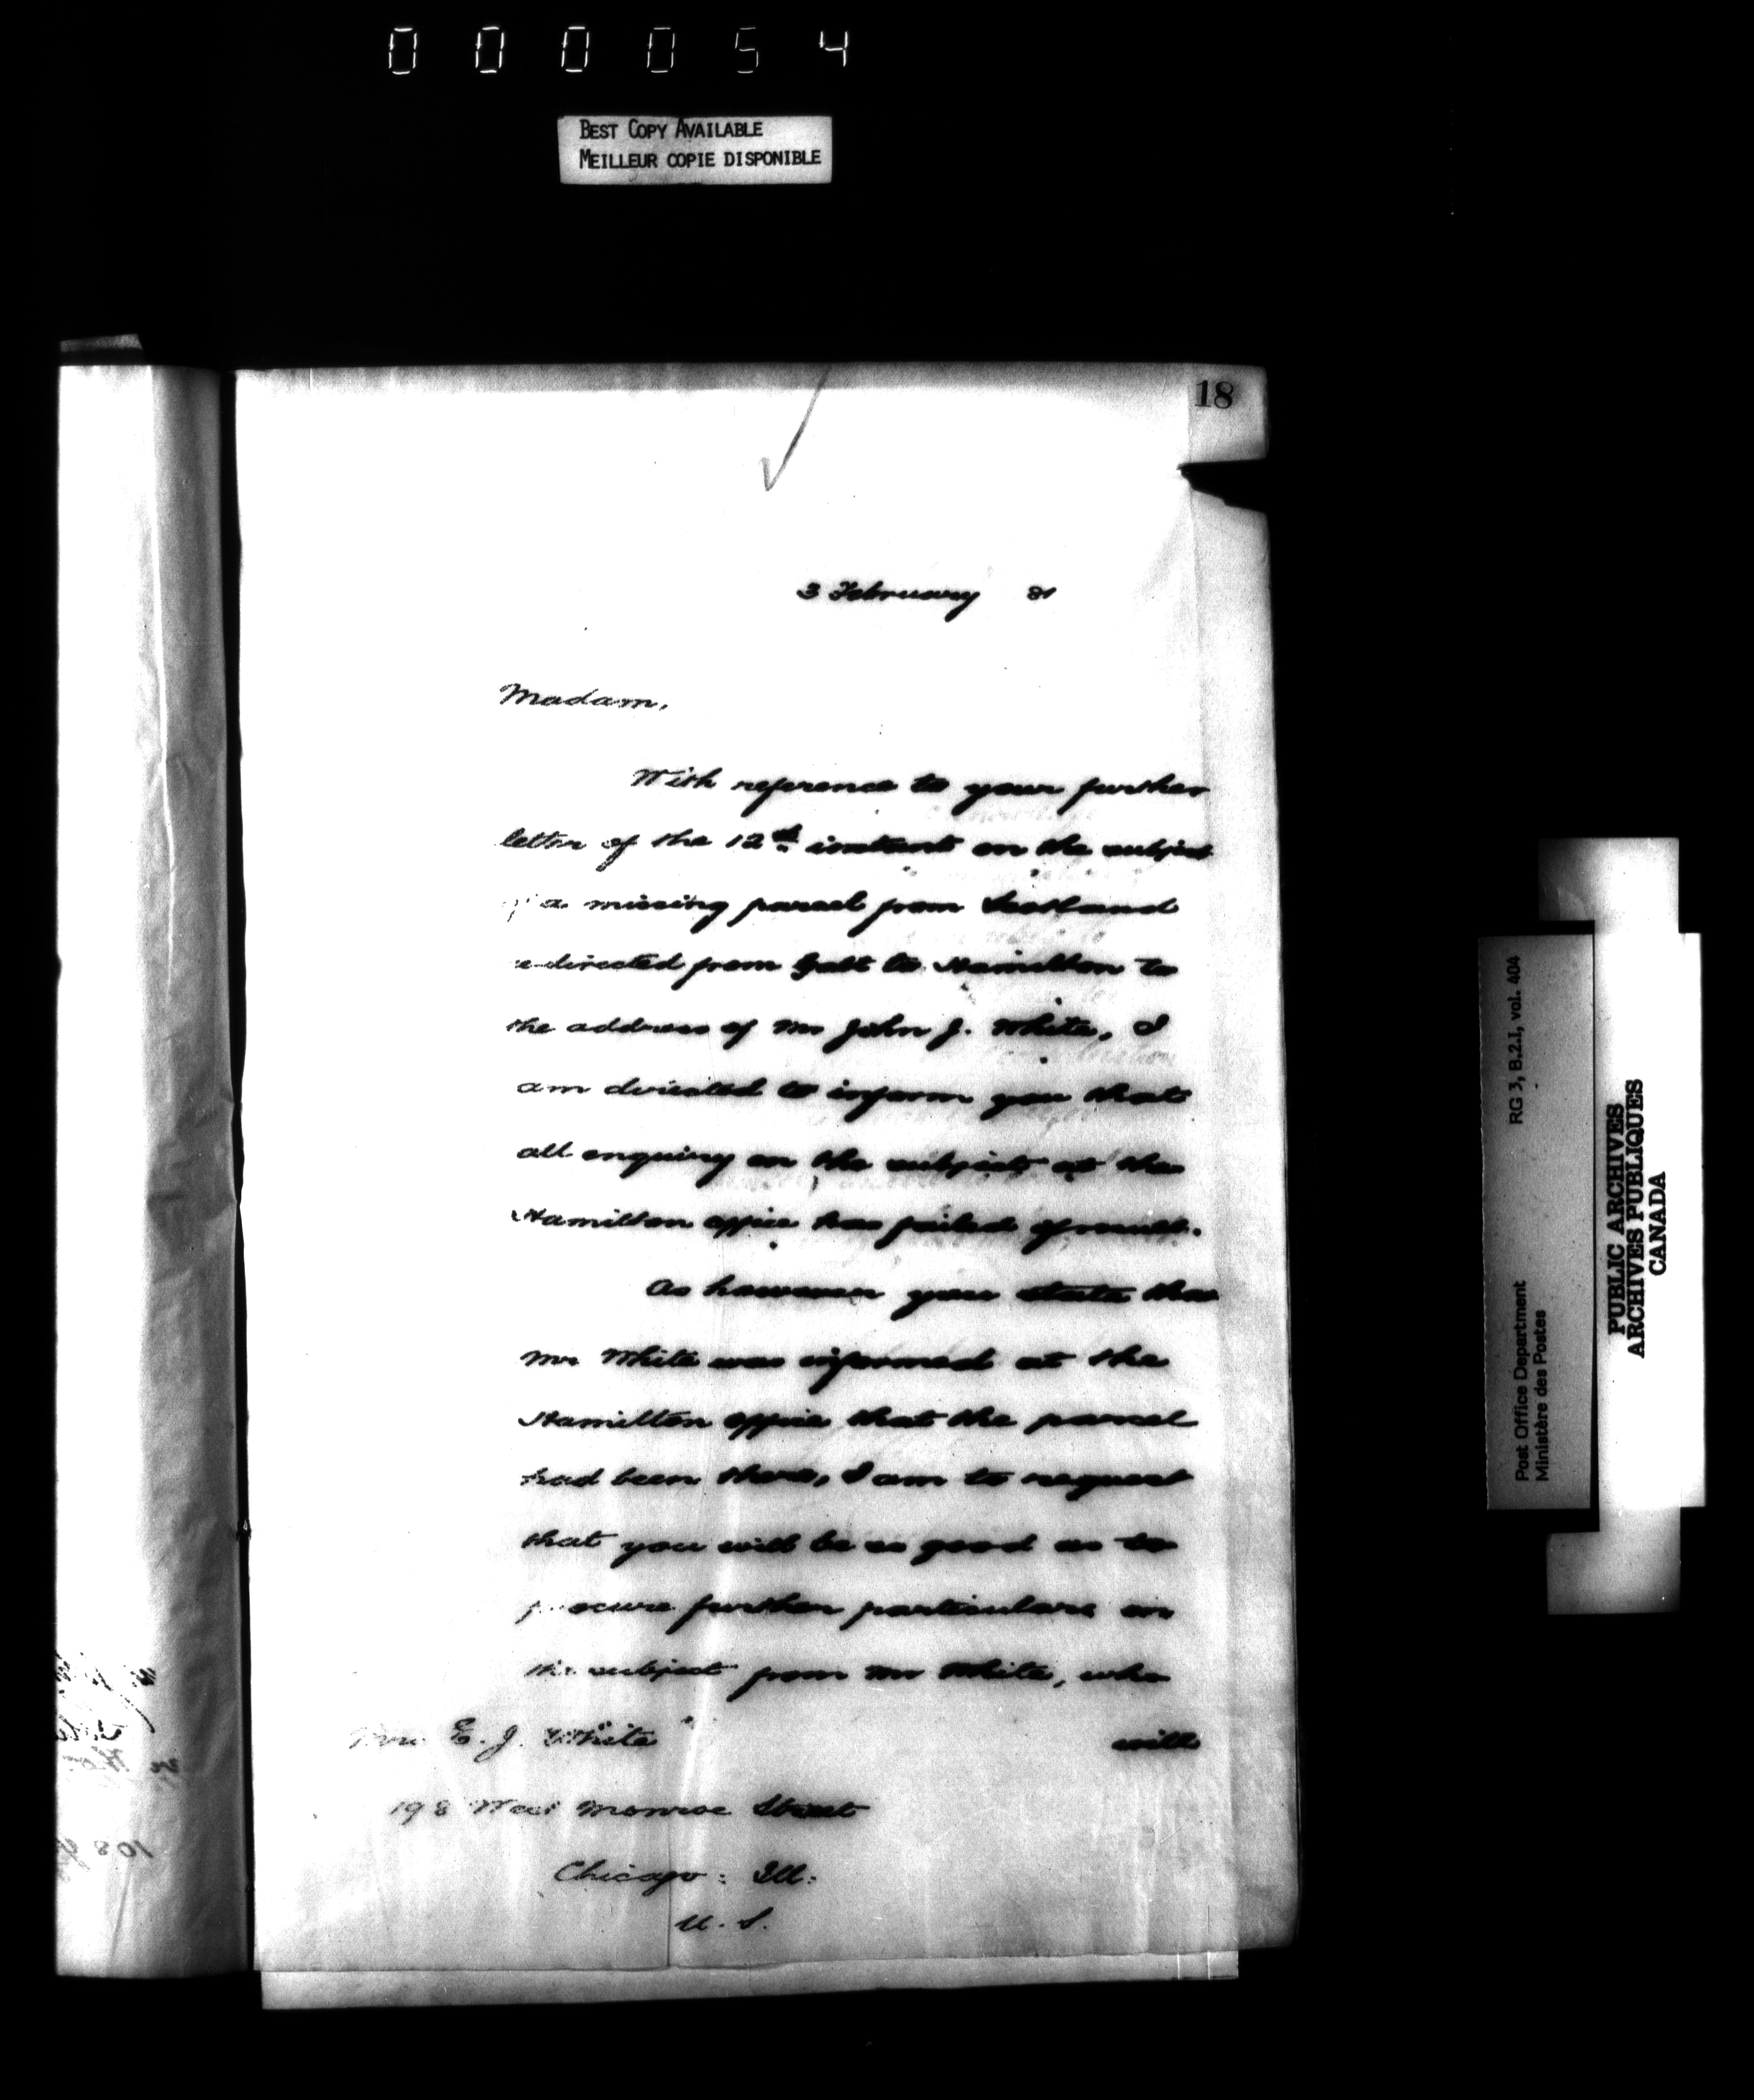 000054
BEST COPY AVAILABLE
MEILLEUR COPIE DISPONIBLE
18
3 February 81
Madam,
With reference to your further
letter of the 12th instant on the subject
of a missing parcel from Scotland
re-directed from Galt to Hamilton to
the address of Mr John J. White, I
am directed to inform you that
all enquiry on the subject at the
Hamilton office has failed of result.
As however you state that
Mr White was informed at the
Hamilton office that the parcel
had been there, I am to request
that you will be so good as to
procure further particulars on
the subject from Mr White, who
will
Mrs E. J. White
198 West Monroe Street
Chicago: Ill:
U. S.
RG 3, B.2.I, vol. 404
Post Office Department
Ministère des Postes
PUBLIC ARCHIVES
ARCHIVES PUBLIQUES
CANADA